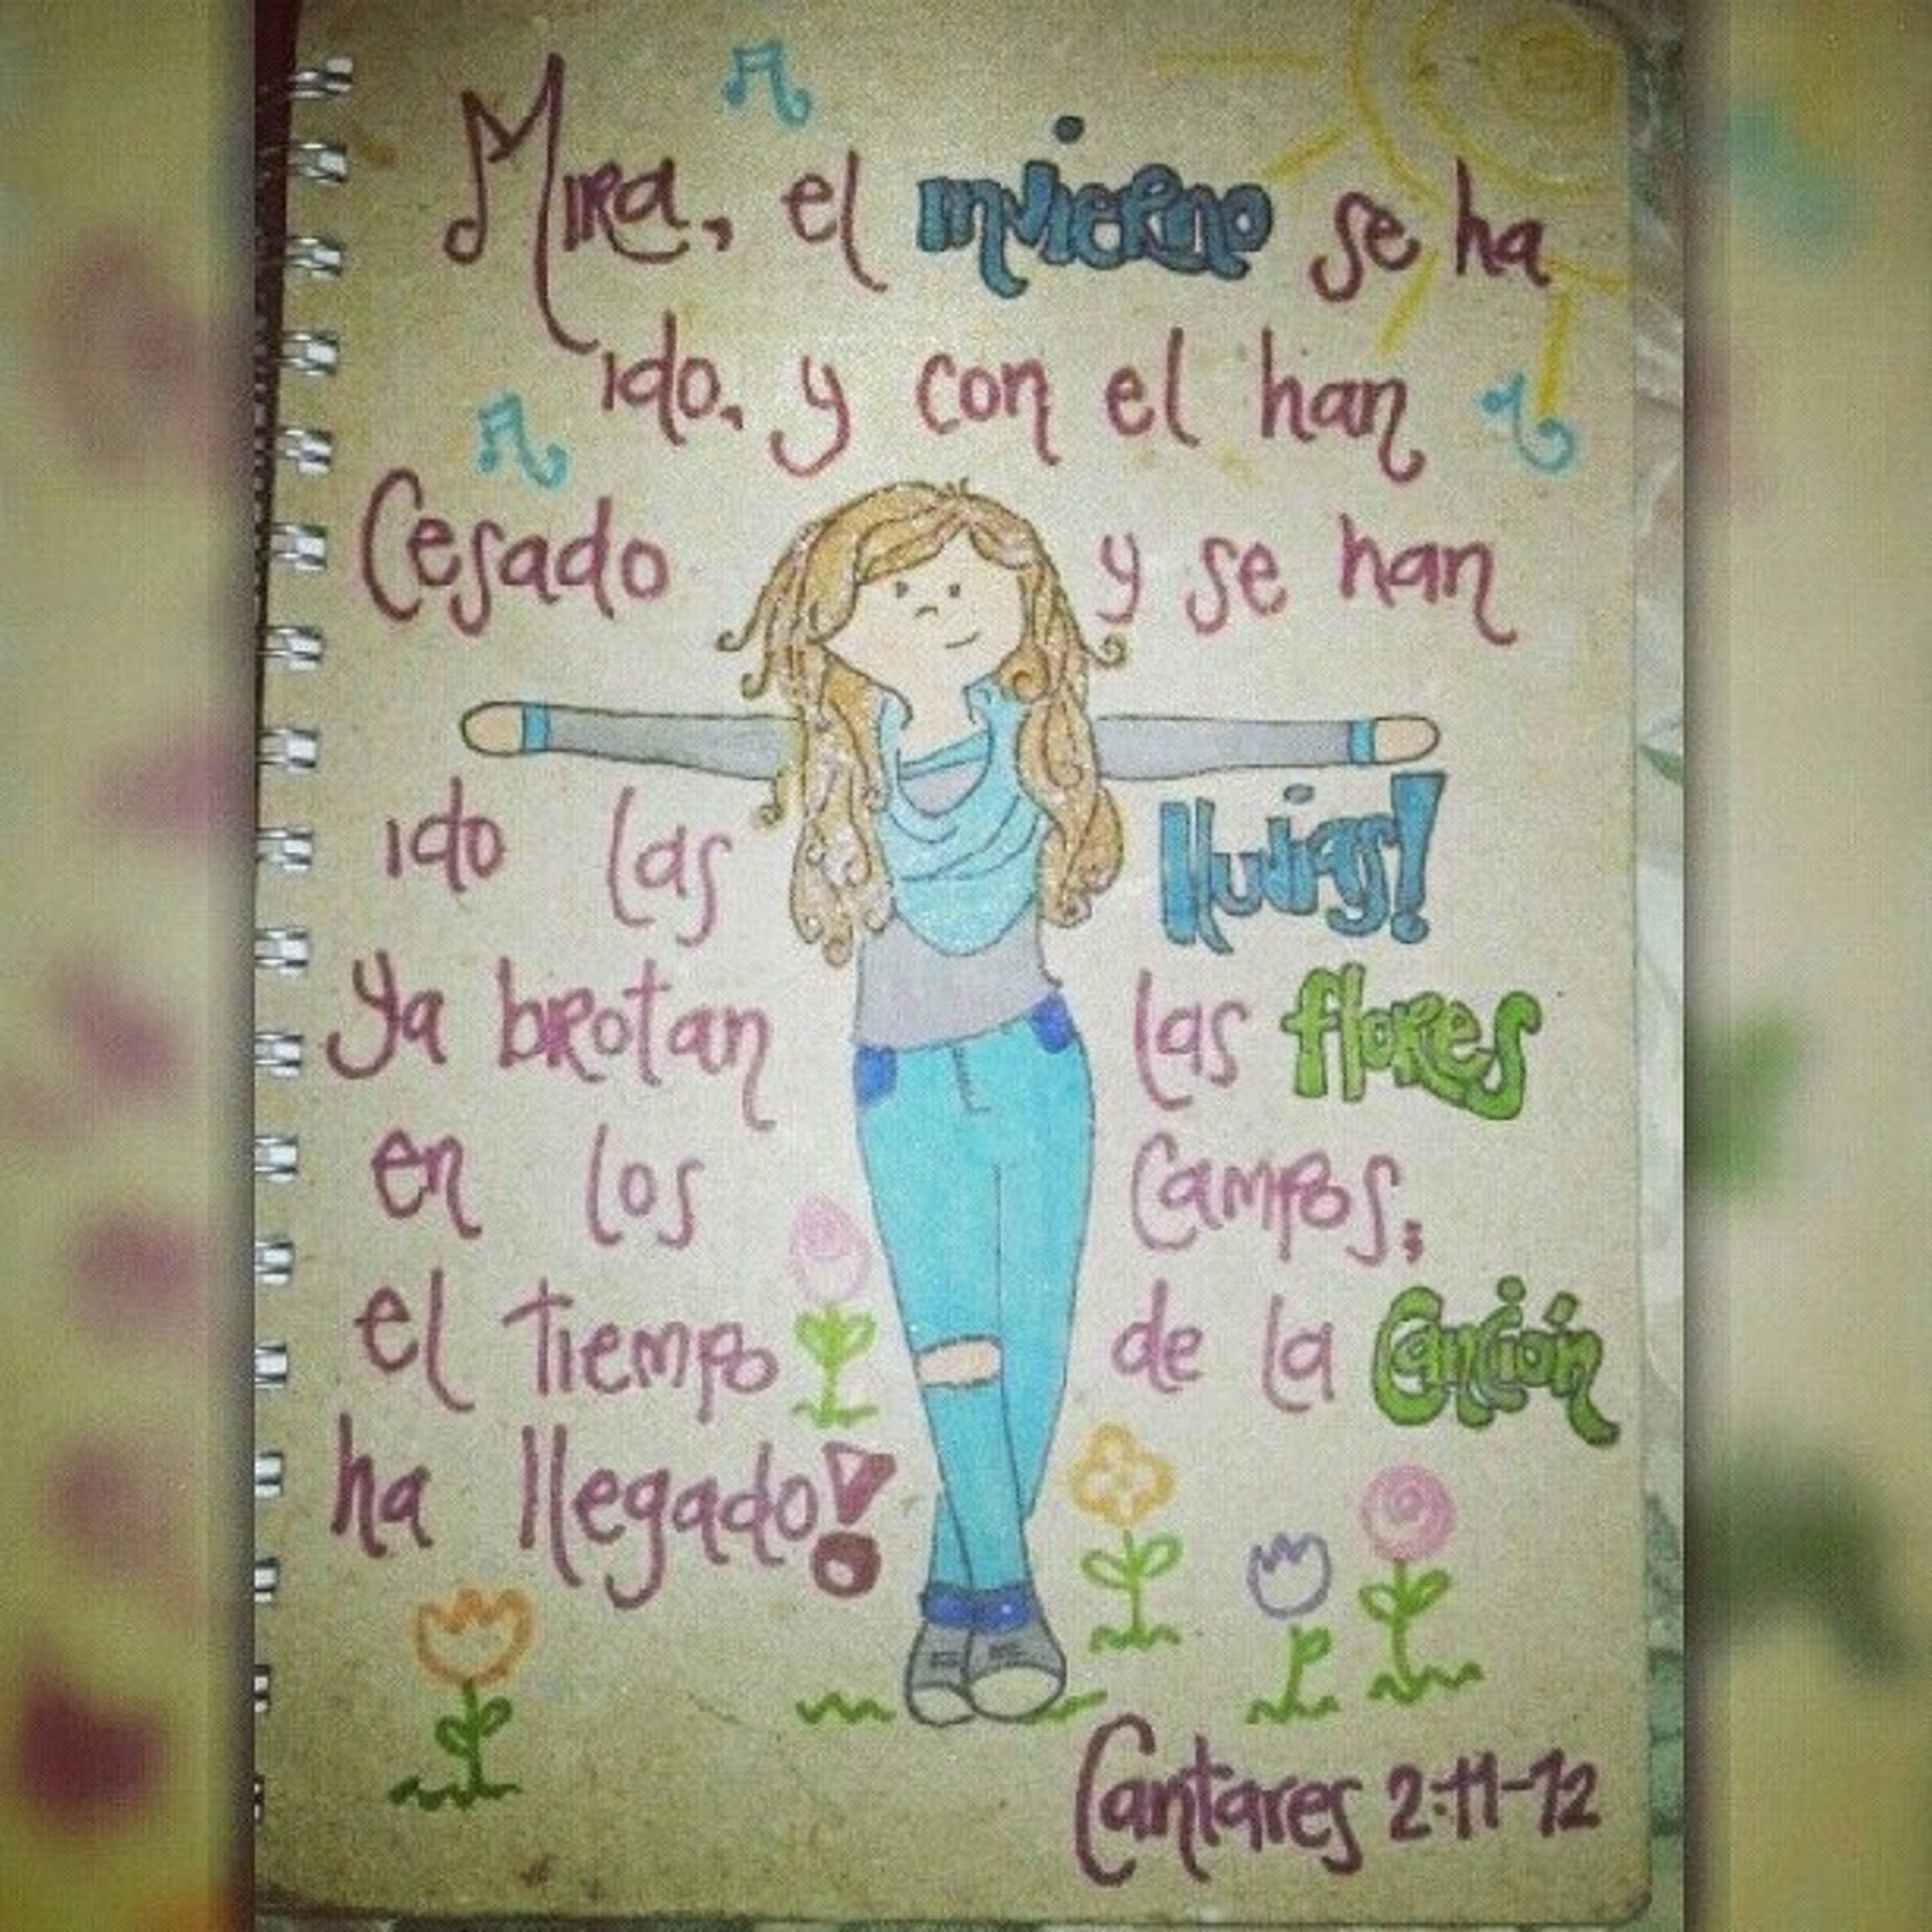 Mira, el invierno se ha
ido, y con el han
Cesado y se han
ido las lluvias!
Ya brotan las flores
en los Campos;
el tiempo de la Canción
ha llegado!
Cantares 2:11-12